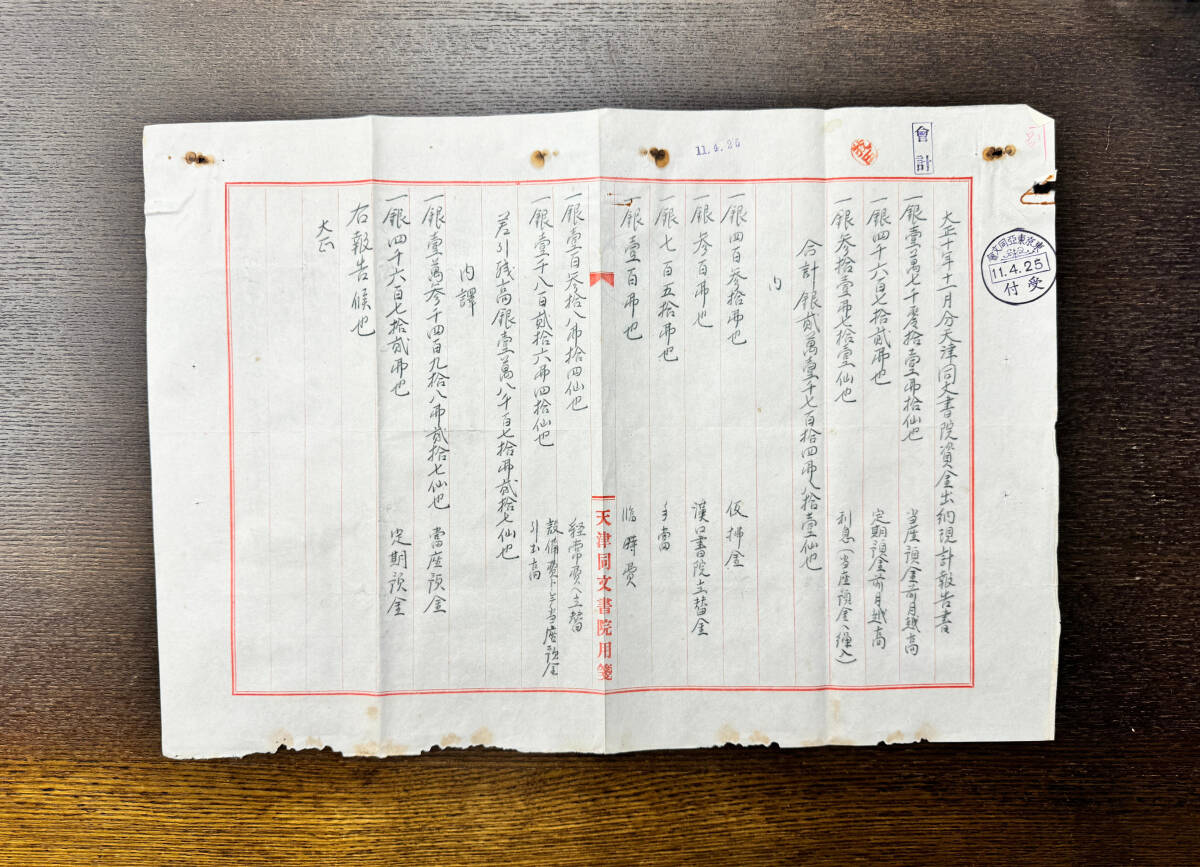 會計
11.4.25
東京東亞同文會
11.4.25
受付
大正十年十一月分天津同文書院資金出納現計報告書
一銀壹萬七千零拾壹弗拾仙也 当座預金前月越高
一銀四千六百七拾貳弗也 定期預金前月越高
一銀参拾壹弗七拾壹仙也 利息(当座預金ヘ繰入)
合計銀貳萬壹千七百拾四弗八拾壹仙也
内
一銀四百参拾弗也 仮拂金
一銀参百弗也 漢口書院立替金
一銀七百五拾弗也 手當
一銀壹百弗也 臨時費
天津同文書院用箋
一銀壹百参拾八弗拾四仙也 経常費ヘ立替
一銀壹千八百貳拾六弗四拾仙也 設備費トシテ当座預金引出高
差引残高銀壹萬八千百七拾弗貳拾七仙也
内譯
一銀壹萬参千四百九拾八弗貳拾七仙也 當座預金
一銀四千六百七拾貳弗也 定期預金
右報告候也
大正